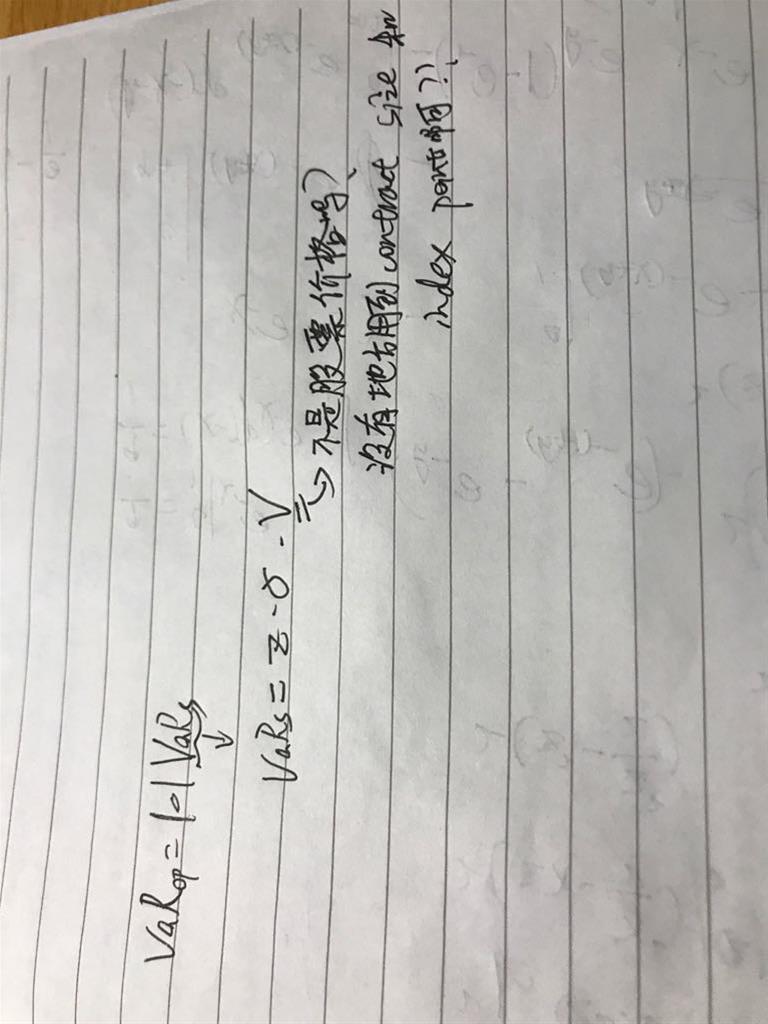 VaRop = |σ| VaRs
VaRs = z · σ · V
不是股票价格吗?
没有地方用到 contract size 和
index point啊??